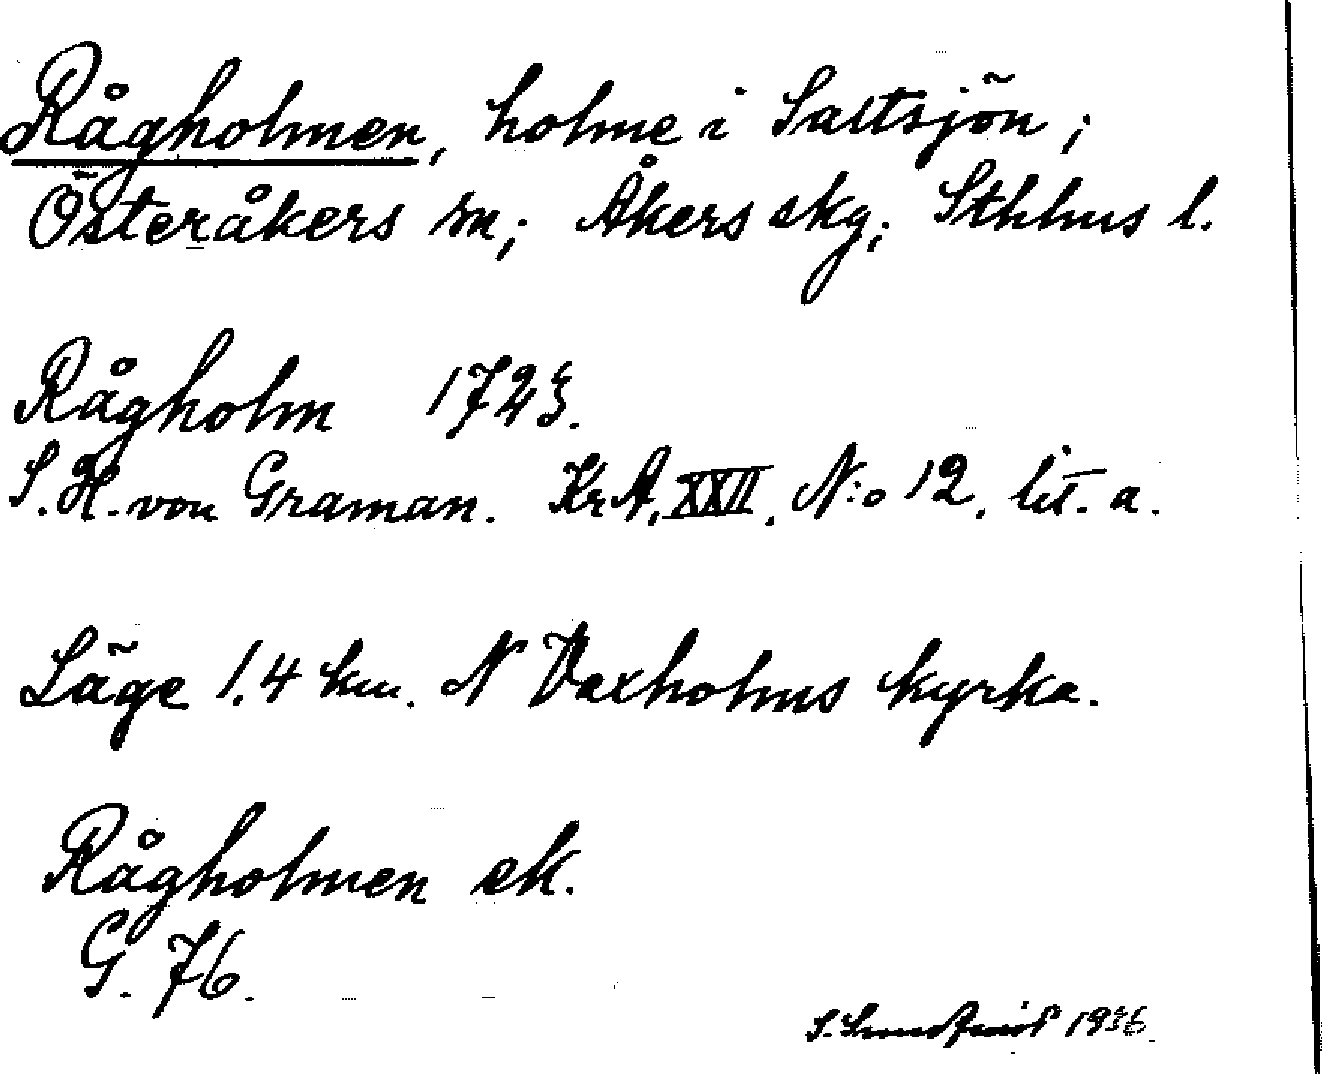 Rågholmen, holme i Saltsjön;
Österåkers sn; Åkers skg; Sthlms l.
Rågholm 1723.
S. H. von Graman. KrA, XXII, N:o 12. lit. a.
Läge 1.4 km. N Vaxholms kyrka.
Rågholmen ek.
G. 76.
S. 1936